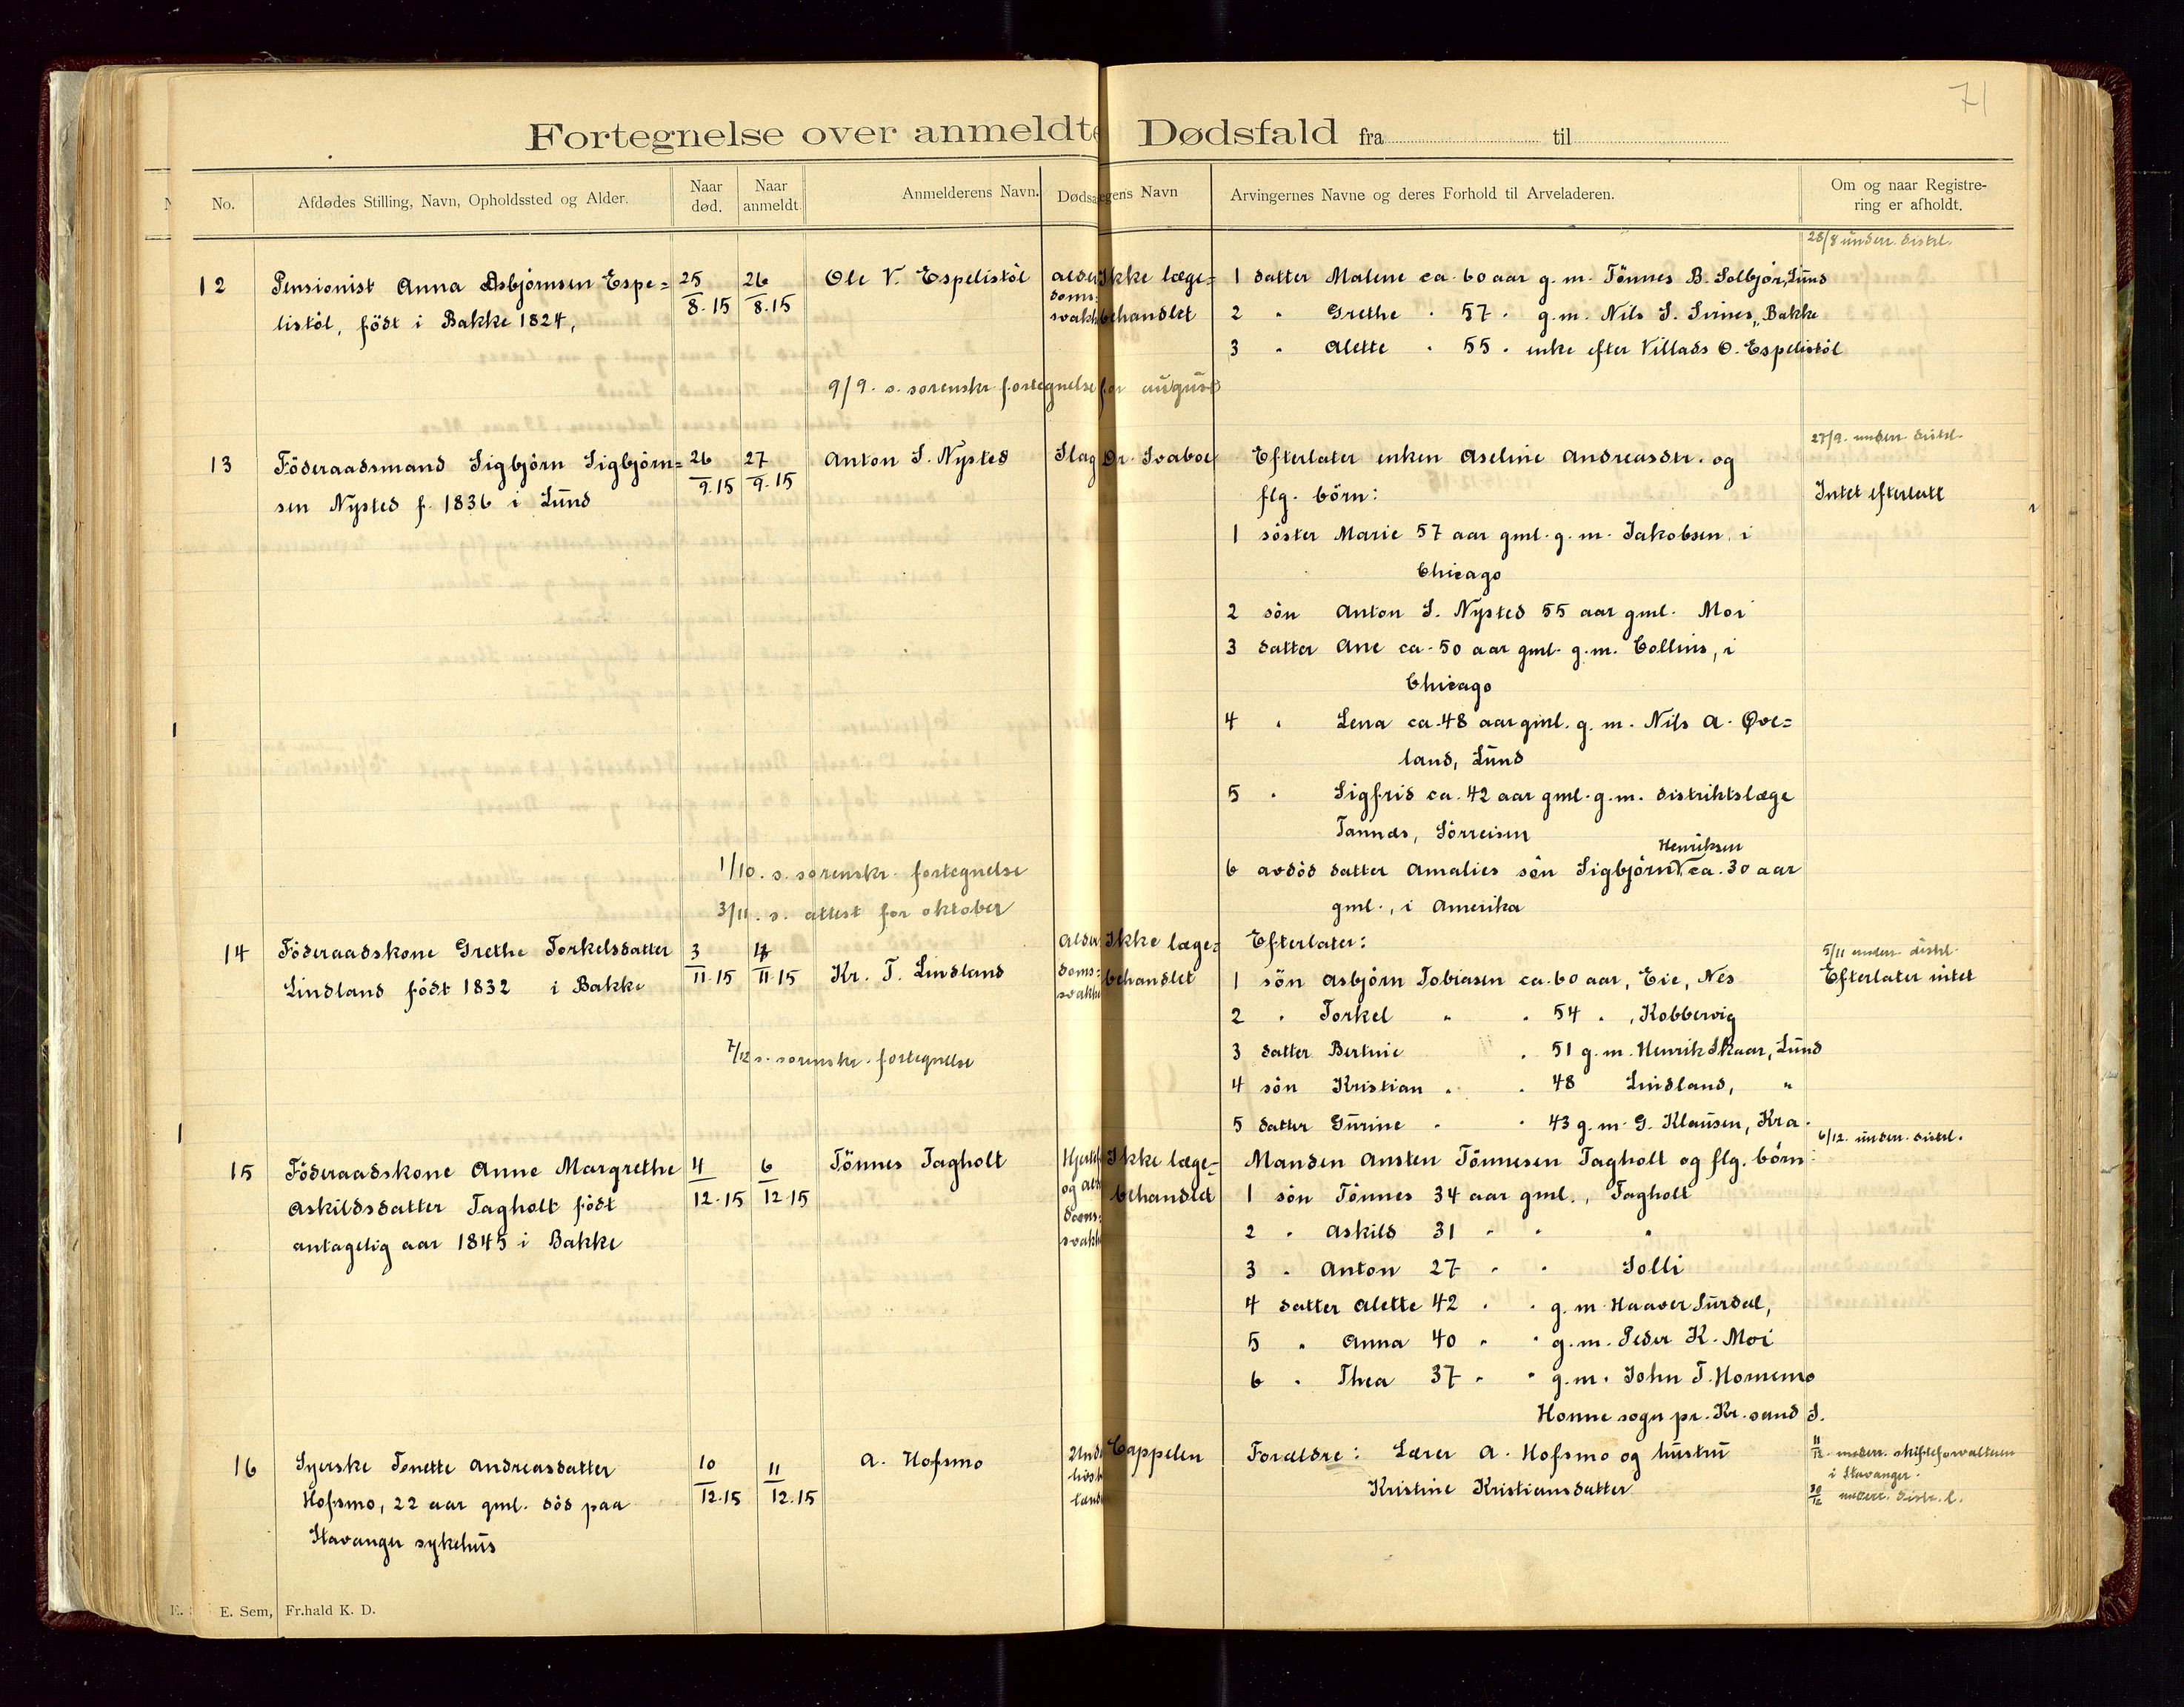 71
Fortegnelse over anmeldte Dødsfald fra til
No.
Afdødes Stilling, Navn, Opholdssted og Alder.
Naar død.
Naar anmeldt.
Anmelderens Navn.
Arvingernes Navne og deres Forhold til Arveladeren.
Om og naar Registre-
ring er afholdt.
28/8 underr. distrl.
12 Pensionist Anna Asbjörnsen Espe= 25/8.15 26/8.15 Ole V. Espelistöl Ikke læge= 1 datter Malene ca. 60 aar g. m. Tönnes B. Solbjör, Lund
listöl, födt i Bakke 1824, behandlet 2 " Grethe " 57 " g. m. Nils S. Sirnes, Bakke
3 " Alette " 55 " enke efter Villads O. Espelistöl
9/9. s. sorenskr. fortegnelse for august
27/9. underr. distrl.
13 Föderaadsmand Sigbjörn Sigbjörn= 26/9.15 27/9.15 Anton S. Nysted Slag Dr. Svaboe Efterlater enken Aseline Andreasdtr. og
sen Nysted f. 1836 i Lund flg. börn: Intet efterlatt
1 söster Marie 57 aar gml. g. m. Jakobsen, i
Chicago
2 sön Anton S. Nysted 55 aar gml. Moi
3 datter Ane ca. 50 aar gml. g. m. Collins, i
Chicago
4 " Lena ca. 48 aar gml. g. m. Nils A. Øve=
land, Lund
5 " Sigfrid ca. 42 aar gml. g. m. distriktslæge
Tannæs, Sörreisen
Henriksen
1/10. s. sorenskr. fortegnelse 6 avdöd datter Amalies sön Sigbjörn ca. 30 aar
3/11. s. attest for oktober gml., i Amerika
14 Föderaadskone Grethe Torkelsdatter 3/11.15 4/11.15 Kr. T. Lindland Ikke læge= Efterlater: 5/11 underr. distrl.
Lindland födt 1832 i Bakke behandlet 1 sön Asbjörn Tobiasen ca. 60 aar, Eie, Nes Efterlater intet
2 " Torkel " " 54 " , Kobbervig
7/12 s. sorenskr. fortegnelse 3 datter Bertine " 51 g. m. Henrik Skaar, Lund
4 sön Kristian " " 48 Lindland, "
5 datter Gurine " " 43 g. m. G. Klausen, Kra.
6/12. underr. distrl.
15 Föderaadskone Anne Margrethe 4/12.15 6/12.15 Tönnes Tagholt Ikke læge- Manden Ansten Tönnesen Tagholt og flg. börn:
Askildsdatter Tagholt födt behandlet 1 sön Tönnes 34 aar gml., Tagholt
antagelig aar 1845 i Bakke 2 " Askild 31 " " "
3 " Anton 27 " " Solli
4 datter Alette 42 " " g. m. Haaver Surdal,
5 " Anna 40 " " g. m. Peder K. Moi
6 " Thea 37 " " g. m. John T. Homemo
Honne sogn pr. Kr. sand S.
16 Syerske Tonette Andreasdatter 10/12.15 11/12.15 A. Hofsmo Cappelen Forældre: Lærer A. Hofsmo og hustru 11/12. underr. skifteforvalteren
i Stavanger.
Hofsmo, 22 aar gml. död paa Kristine Kristiansdatter 30/12 underr. distr. l.
Stavanger sykehus
E. Sem, Fr.hald K. D.